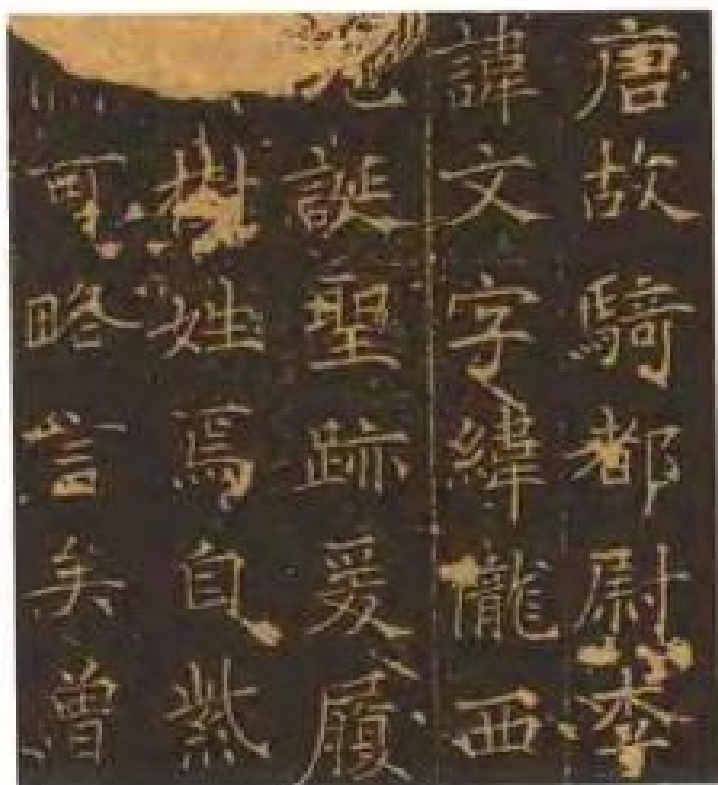 唐故騎都尉李
諱文字緯隴西
誕聖跡爰履
樹姓焉自紫
可略言矣曽